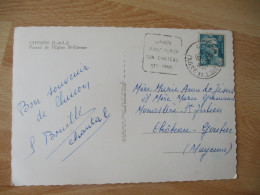 CHINON (I.-et-L.)
Portail de l'Église St-Etienne
CHINON
SON CHATEAU
SES VINS
Bon souvenir
de Chinon
Chantal
Mère Marie Anne de Jésus
et Mère Marie Germaine
Monastère St Julien
Château-Gontier
(Mayenne)